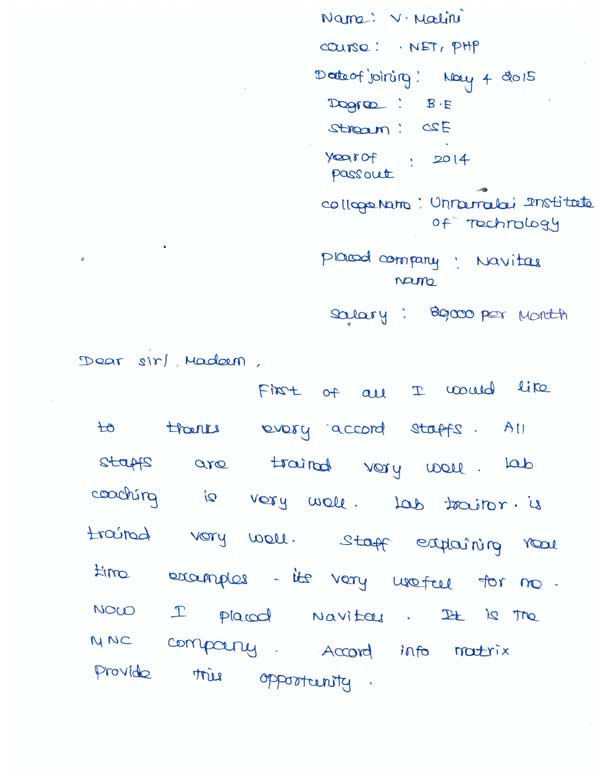 Name : V. Malini
course : .NET, PHP
Date of joining : May 4 2015
Degree : B.E
Stream : CSE
Year of : 2014
passout
college Name : Unnamalai Institute
of Technology
placed company : Navitas
name
Salary : 20,000 per Month
Dear sir/ Madam,
First of all I would like
to thanks every accord staffs. All
staffs are trained very well. Lab
coaching is very well. Lab trainor is
trained very well. Staff explaining real
time examples - its very useful for me.
NOW I placed Navitas. It is the
MNC company. Accord info matrix
Provide this opportunity.